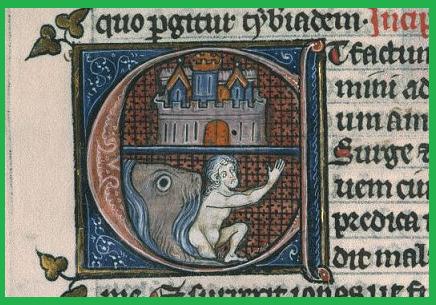 quo pgitur tybiadem. Incip
E T factum
mini ad
um am
Surge
uem ciu
predica
dit mal